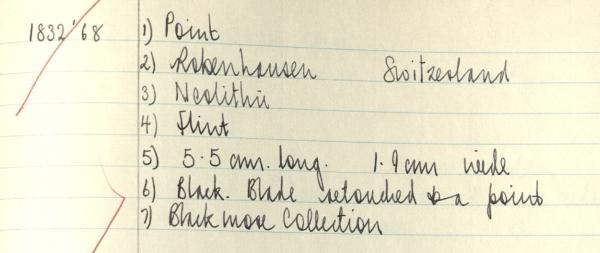 1832'68 1) Point
2) Robenhausen Switzerland
3) Neolithic
4) Flint
5) 5.5 cm. long. 1.9 cm wide
6) Black. Blade retouched to a point
7) Blackmore Collection